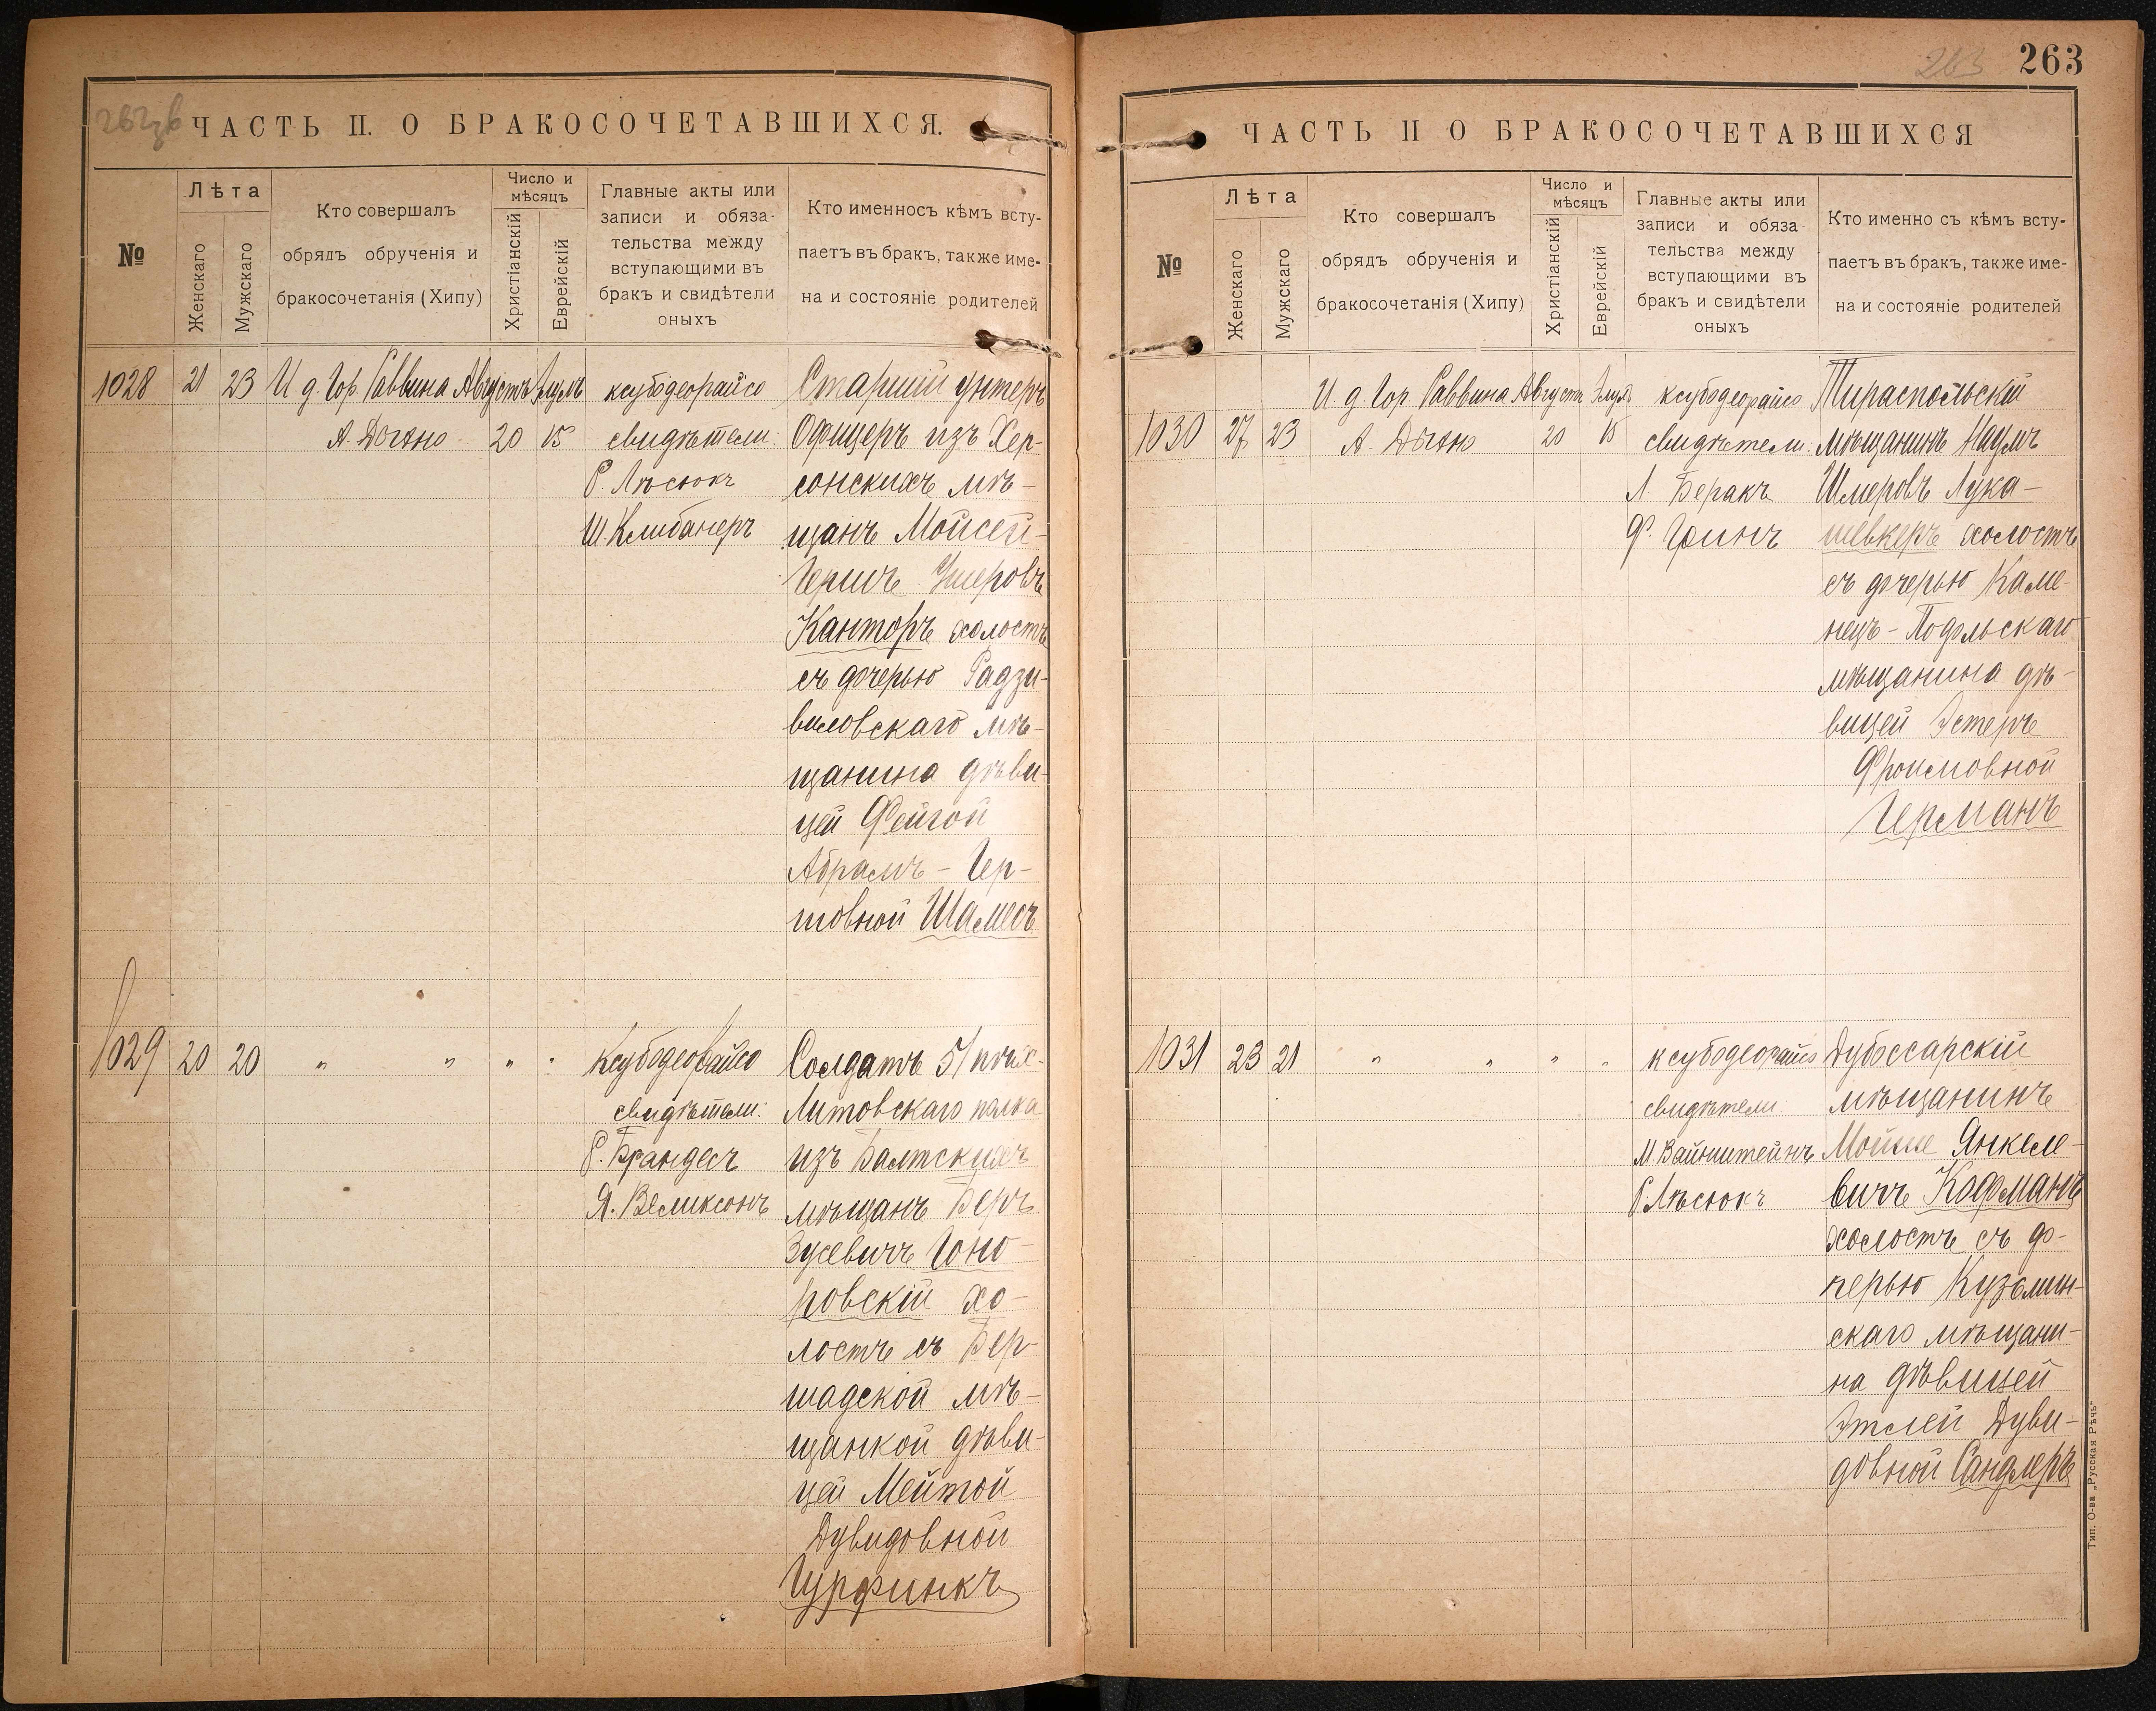 262 об
ЧАСТЬ II. О БРАКОСОЧЕТАВШИХСЯ.
№
Лѣта
Женскаго
Мужскаго
Кто совершалъ
обрядъ обрученія и
бракосочетанія (Хипу)
Число и
мѣсяцъ
Христіанскій
Еврейскій
Главные акты или
записи и обяза-
тельства между
вступающими въ
бракъ и свидѣтели
оныхъ
Кто именносъ кѣмъ всту-
паетъ въ бракъ, также име-
на и состояніе родителей
1028 21 23 И д. Гор. Раввина Августъ Элулъ
А. Дыхно 20 15
ксубодеорайсо
свидѣтели:
Р. Лѣсюкъ
Ш. Клибанеръ
Старшій унтеръ
Офицеръ изъ Хер-
сонскихъ мѣ-
щанъ Мойсей-
Гершъ Ушеровъ
Канторъ холостъ
съ дочерью Радзи-
виловскаго мѣ-
щанина дѣви-
цей Фейгой
Абрамъ - Гер-
шовной Шамесъ
1029 20 20 " " " "
Ксубодеорайсо
свидѣтели:
Р. Брандесъ
Я. Великсонъ
Солдатъ 51 пѣх-
Литовскаго полка
изъ Балтскихъ
мѣщанъ Беръ
Зусевичъ Гоно-
ровскій хо-
лостъ съ Бер-
шадской мѣ-
щанкой дѣви-
цей Мейтой
Дувидовной
Гурфинкъ
263 263
ЧАСТЬ II О БРАКОСОЧЕТАВШИХСЯ
№
Лѣта
Женскаго
Мужскаго
Кто совершалъ
обрядъ обрученія и
бракосочетанія (Хипу)
Число и
мѣсяцъ
Христіанскій
Еврейскій
Главные акты или
записи и обяза-
тельства между
вступающими въ
бракъ и свидѣтели
оныхъ
Кто именно съ кѣмъ всту-
паетъ въ бракъ, также име-
на и состояніе родителей
И д Гор Раввина Августъ Элулъ
1030 27 23 А. Дыхно 20 15
ксубодеорайсо
свидѣтели:
Л Беракъ
Ф. Гринъ
Тираспольскій
мѣщанинъ Наумъ
Шмеровъ Лука-
шевкеръ холостъ
съ дочерью Каме-
нецъ - Подольскаго
мѣщанина дѣ-
вицей Эстеръ
Фроимовной
Германъ
1031 23 21 " " " "
ксубодеорайсо
свидѣтели:
М. Вайнштейнъ
Р. Лѣсюкъ
Дубоссарскій
мѣщанинъ
Мойше Янкеле-
вичъ Кофманъ
холостъ съ до-
черью Кузьмин-
скаго мѣщани-
на дѣвицей
Этлей Дуви-
довной Сандлеръ
Тип. О-ва „Русская Рѣчь"